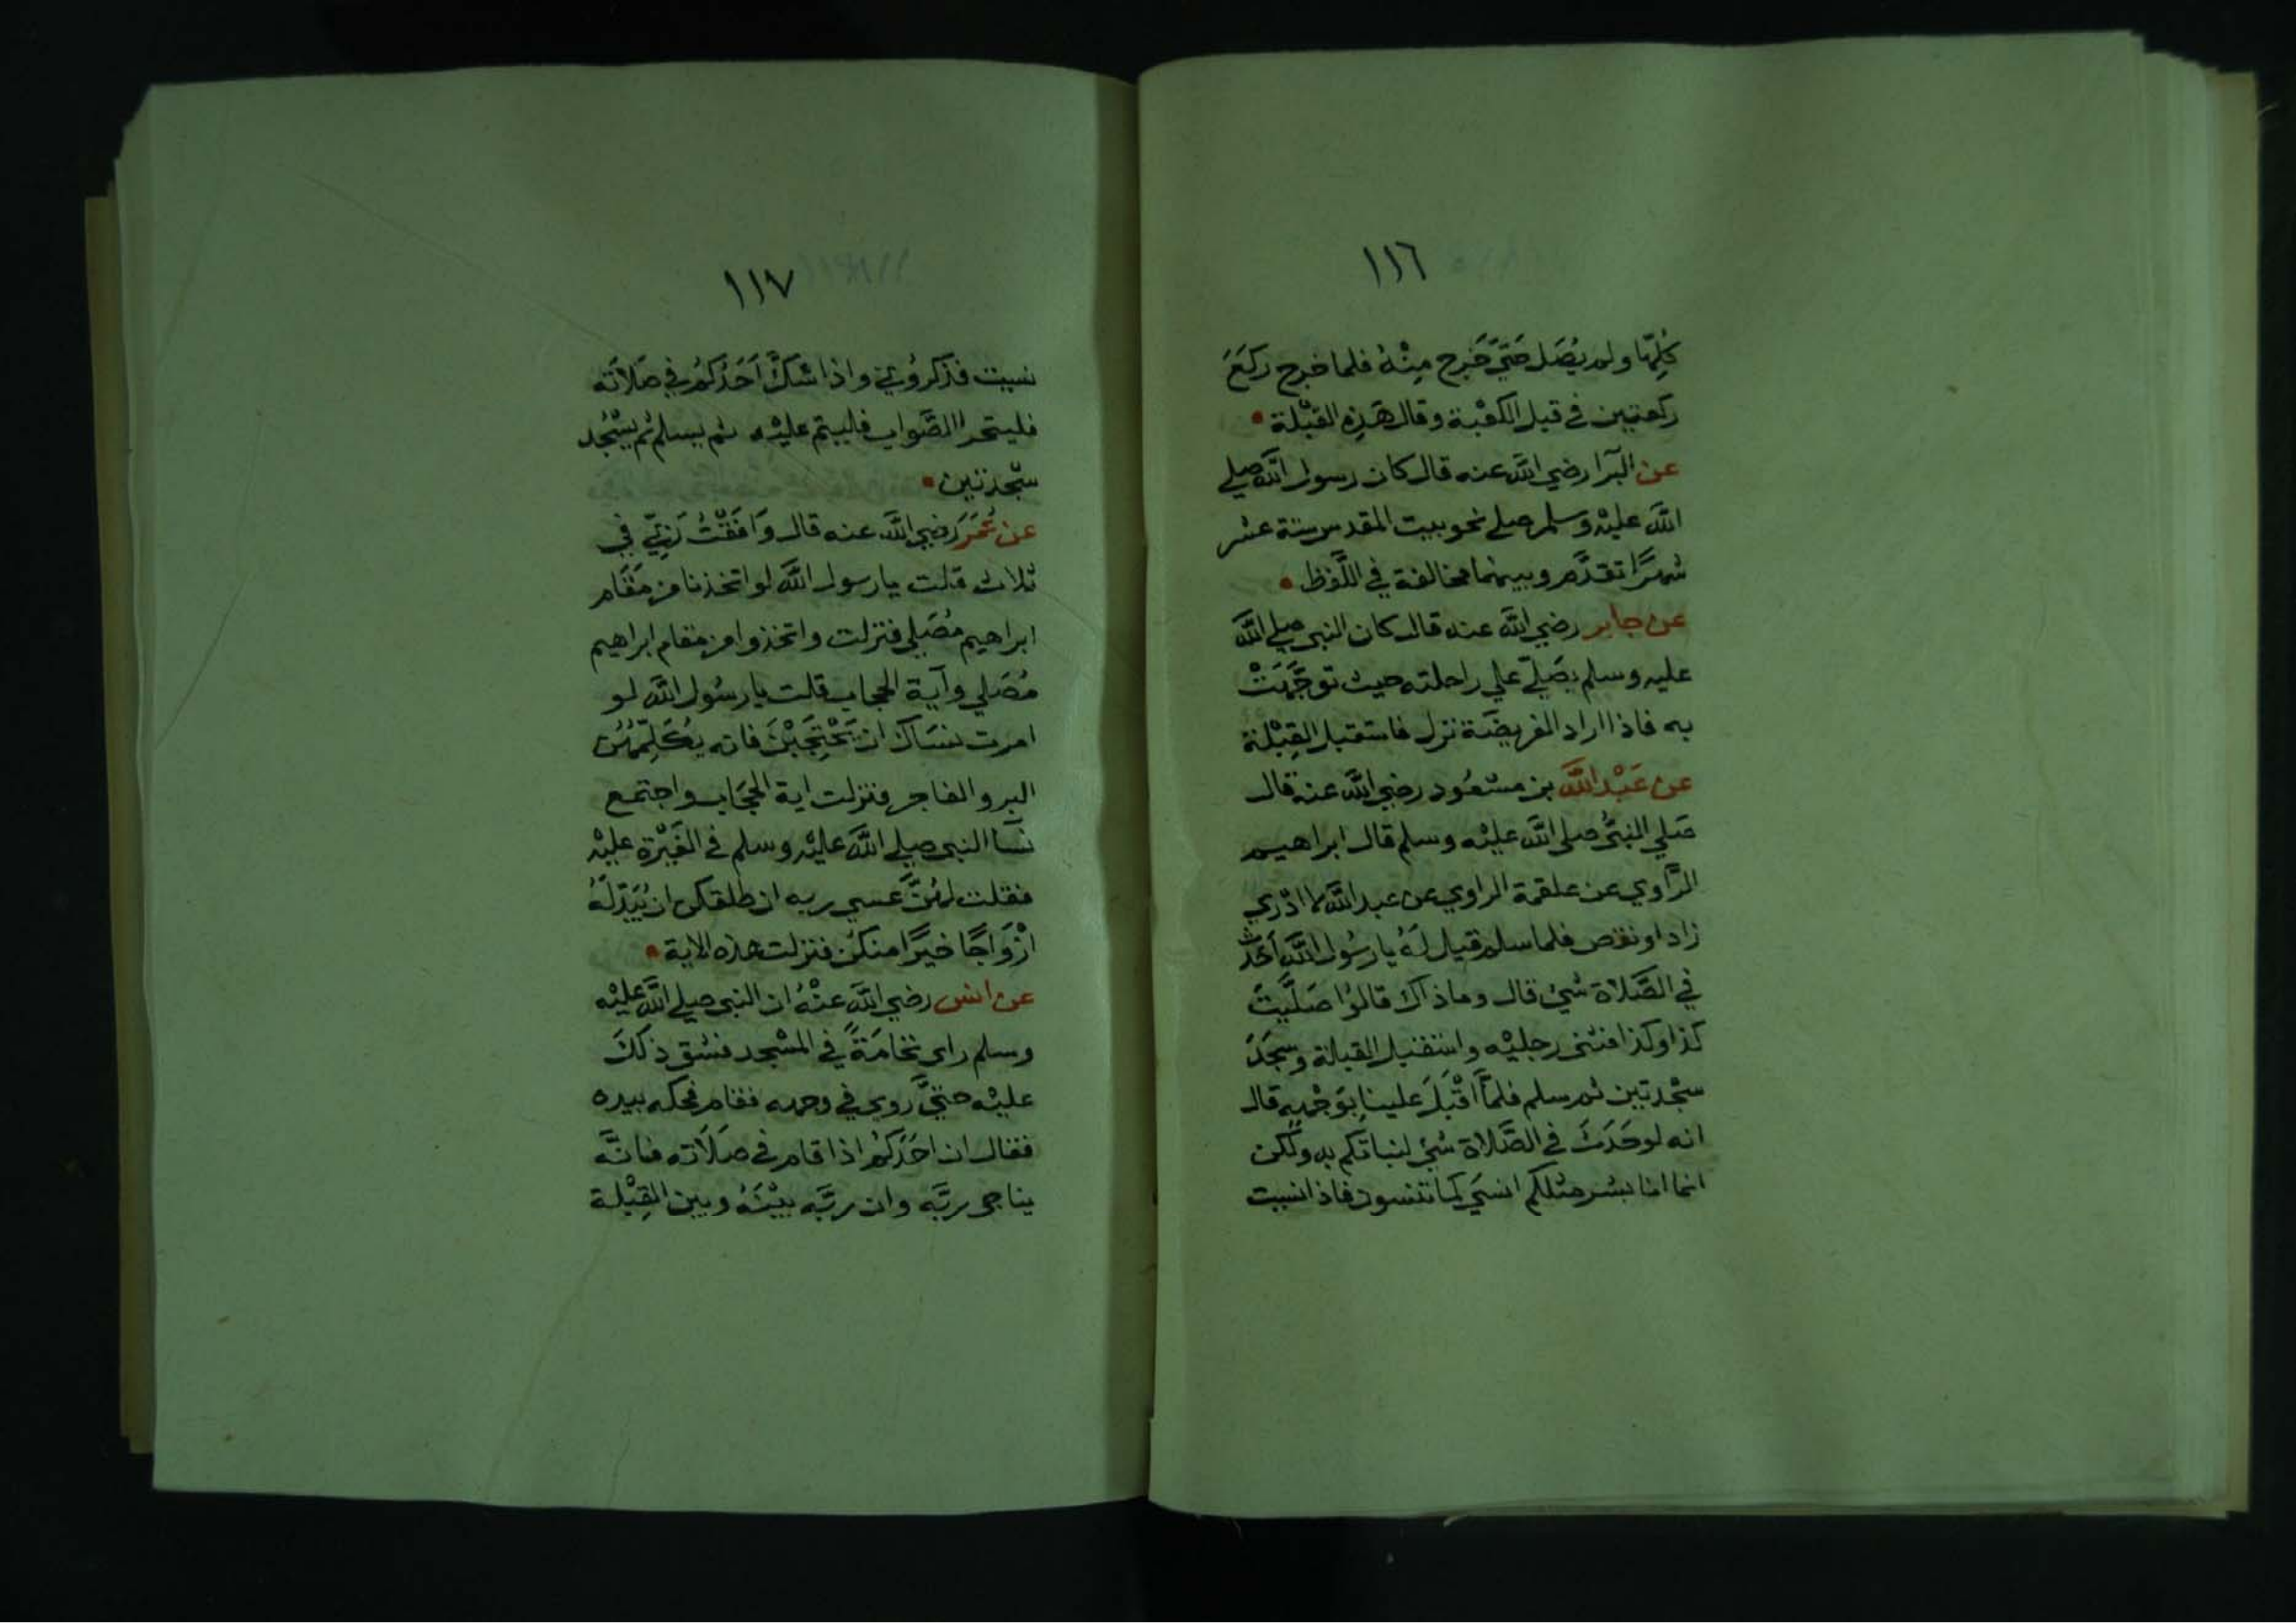 ١١٦
كُلِّهَا ولم يُصَل حَتَّى خَرج مِنْهُ فلما خرج ركَعَ
ركعتين في قبل الكعْبة وقال هَذِهِ القبْلة
عن البَرا رضي الله عنه قال كان رسول الله صلي
الله عليْه وسلم صلي نحو بيت المقدس ستة عشر
شهرًا تقدَّم وبينهما مخالفة في اللَّفظ
عن جابر رضي الله عنه قال كان النبي صلي الله
عليه وسلم يصَلّي علي راحلته حيث توجَّهَتْ
به فاذا اراد الفريضَة نزل فاستقبل القِبْلة
عن عَبْد الله بن مسْعُود رضي الله عنه قال
صَلي النبيُّ صلي الله عليْه وسلم قال ابراهيم
الرَّاوي عن علقمة الراوي عن عبد الله لا ادْري
زاد او نقص فلما سلم قيل لَهُ يا رسُول الله أحَدَث
في الصَّلاة شيْ قال وما ذاك قالوْا صَلَّيتَ
كذا وكذا فثنى رجليْه واستقبل القبلة وسجَدَ
سجْدتين ثم سلم فلمَّا اقْبَلَ علينا بِوَجْهِه قال
انه لو حَدَثَ في الصَّلاة شيْ لنباتكم به ولَكن
انما انا بشر مثلكم انسَي كما تنسون فاذا نسيت
١١٧
نسيت فذكروُني واذا شكَّ اَحَدكمْ في صَلاَته
فليتحر االصَّواب فليتم عليْه ثم يسلم ثم يسْجُد
سجْدتين
عن عُمَرَ رضي الله عنه قال وَافَقْتُ رَبّي في
ثلاث قلت يا رسول الله لو اتخذنا من مَقَام
ابراهيم مُصَلي فنزلت واتخذوا من مقام ابراهيم
مُصَلي وآية الحجاب قلت يا رسُول الله لو
امرت نسَاك ان يَحْتجَبْنَ فانه يُكَلِّمهُن
البر والفاجر فنزلت اية الحجَاب واجتمع
نسَآ النبي صلي الله عليْه وسلم في الغَيْرة عليْه
فقلت لهُنَّ عَسي ربه ان طلقكن ان يُبَدِّلَهُ
ازْوَاجًا خيرًا منكن فنزلت هذه الاية
عن انس رضي الله عنْهُ ان النبي صلي الله عليْه
وسلم راى نخامَةً في المسْجد فشق ذلكَ
عليْه حتيَّ روي في وجهه فقام فحكه بيده
فقال ان احَدَكمْ اذا قام في صَلَاته فانَّه
يناجي ربَّه وان ربَّه بيْنَهُ وبين القِبْلة